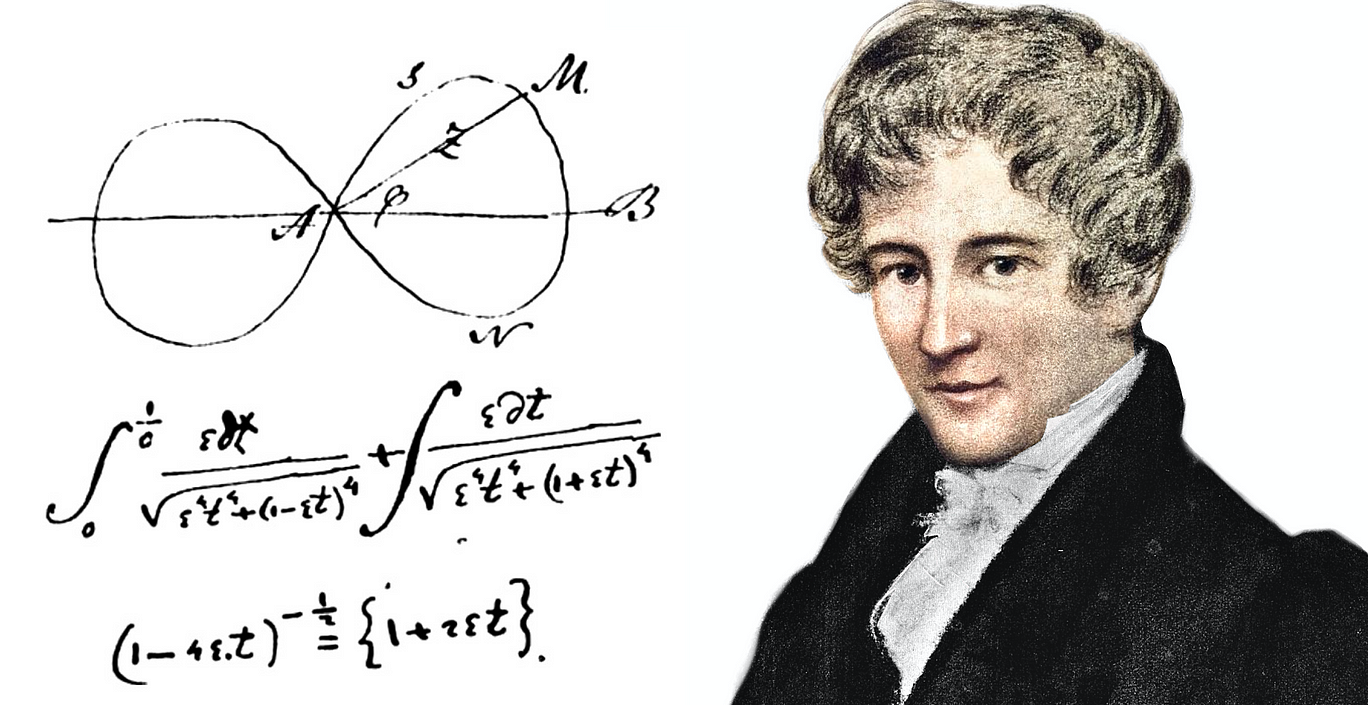 s M.
z
A φ B
N
∫₀^{1/0} ε∂t / √(ε⁴t⁴+(1−εt)⁴) + ∫ ε∂t / √(ε⁴t⁴+(1+εt)⁴)
(1−4ε.t)^{−1/2} = {1+2εt}.